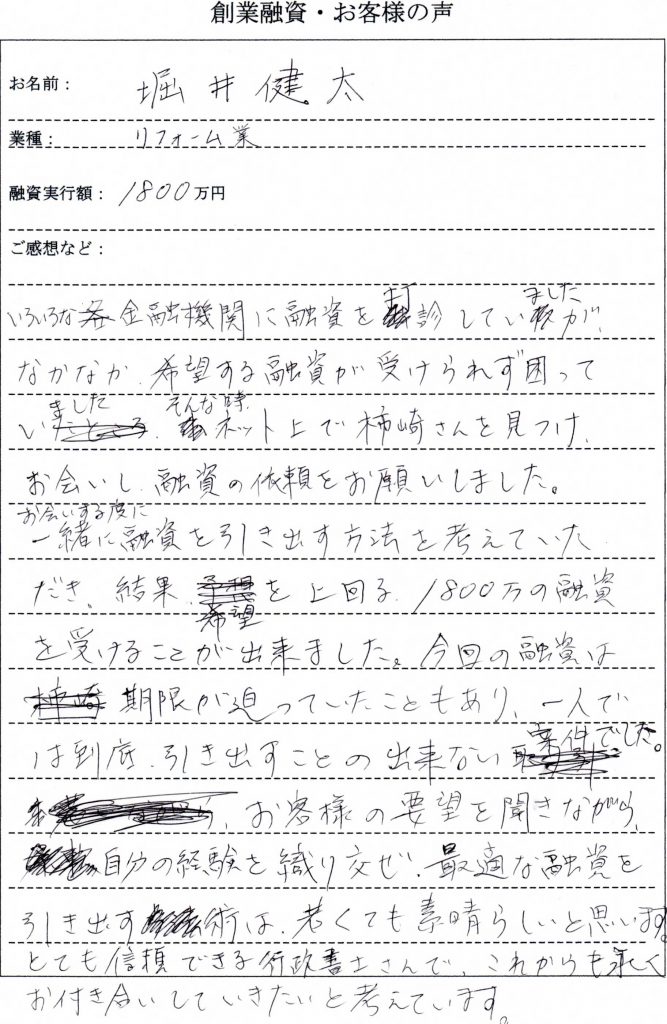 創業融資・お客様の声
お名前： 堀井健太
業種： リフォーム業
融資実行額： 1800万円
ご感想など：
いろいろな金融機関に融資を打診していましたが、
なかなか、希望する融資が受けられず困って
いました。そんな時、ネット上で柿崎さんを見つけ、
お会いし、融資の依頼をお願いしました。
お会いする度に
一緒に融資を引き出す方法を考えていた
だき、結果、希望を上回る、1800万の融資
を受けることが出来ました。今回の融資は
期限が迫っていたこともあり、一人で
は到底、引き出すことの出来ない案件でした。
お客様の要望を聞きながら、
自分の経験を織り交ぜ、最適な融資を
引き出す術は、若くても素晴らしいと思います。
とても信頼できる行政書士さんで、これからも永く
お付き合いしていきたいと考えています。